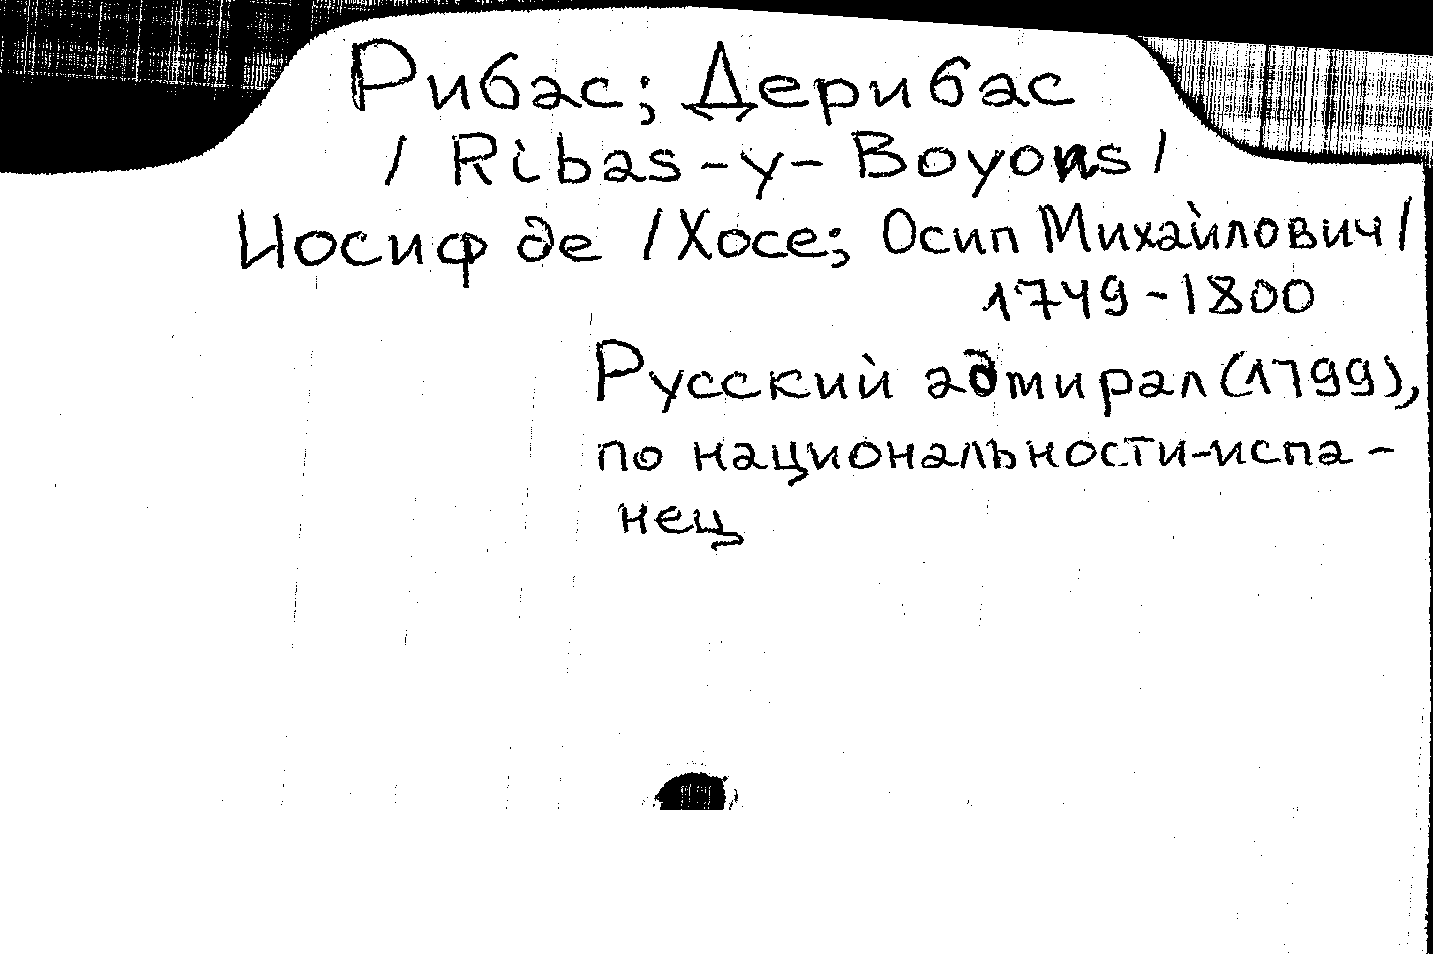 Рибас; Дерибас
/ Ribas-y-Boyons /
Иосиф де /Хосе; Осип Михайлович/
1749-1800
Русский адмирал (1799),
по национальности-испа-
нец